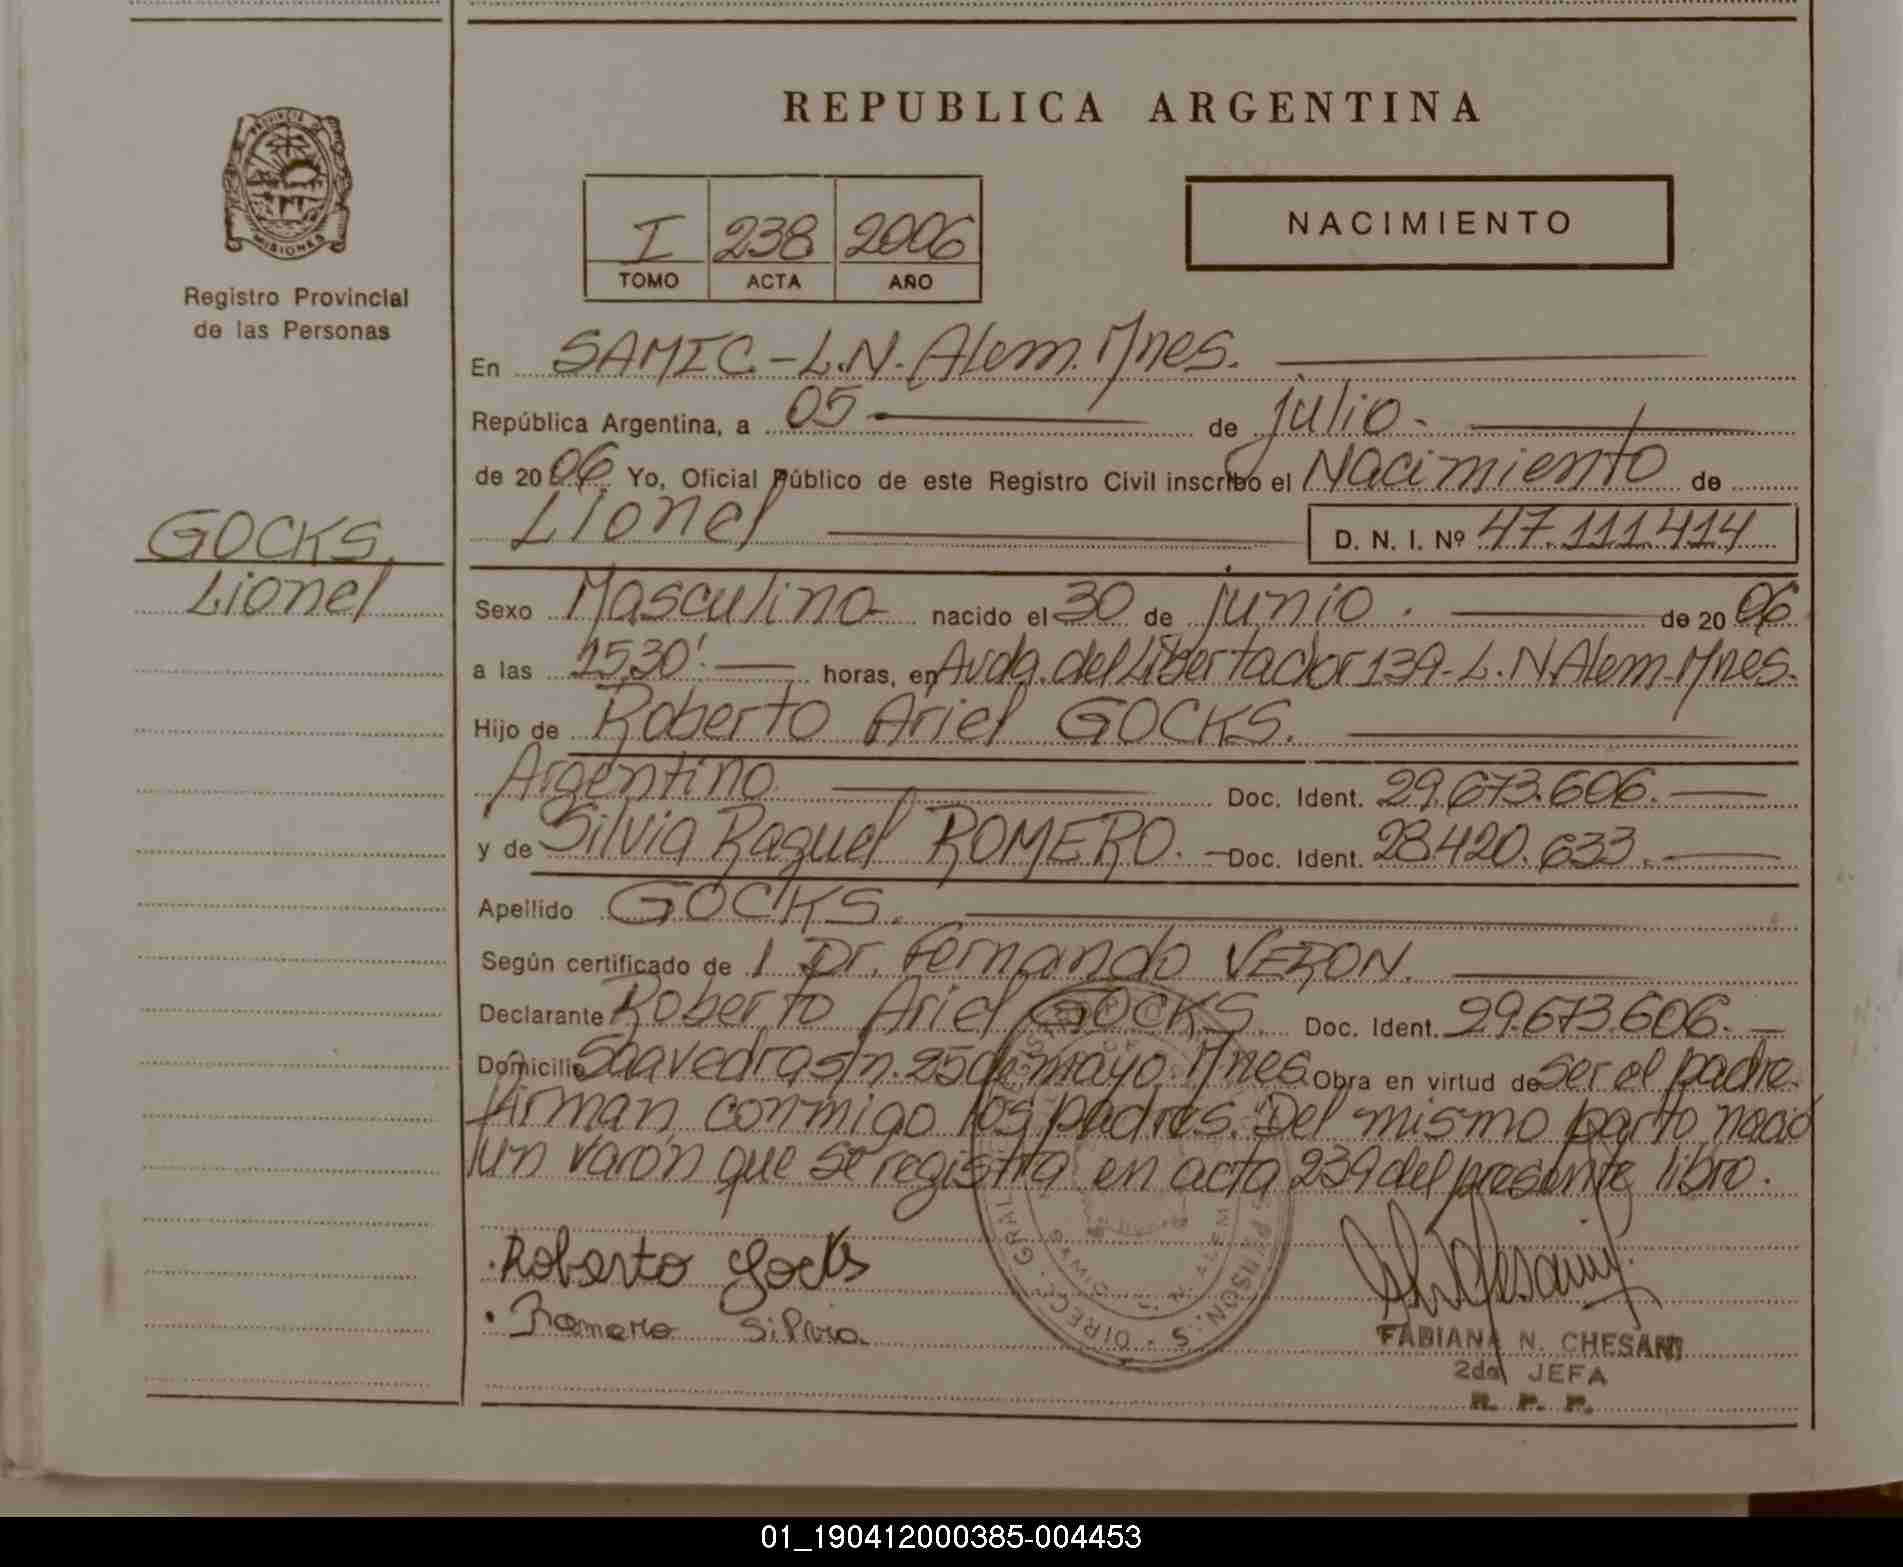 REPUBLICA ARGENTINA
PROVINCIA DE
MISIONES
Registro Provincial
de las Personas
I 238 2006
TOMO ACTA AÑO
NACIMIENTO
En SAMIC - L.N. Alem. Mnes.
República Argentina, a 05 de julio.
de 2006 Yo, Oficial Público de este Registro Civil inscribo el Nacimiento de
Lionel D. N. I. Nº 47.111.414
GOCKS,
Lionel
Sexo Masculino nacido el 30 de junio. de 2006
a las 1530'. horas, en Avda. del Libertador 139 - L. N. Alem. Mnes.
Hijo de Roberto Ariel GOCKS.
Argentino Doc. Ident. 29.673.606.
y de Silvia Raquel ROMERO. Doc. Ident. 28.420.633.
Apellido GOCKS.
Según certificado de 1 Dr. Fernando VERON.
Declarante Roberto Ariel GOCKS. Doc. Ident. 29.673.606.
Domicilio Saavedra s/n. 25 de mayo. Mnes. Obra en virtud de ser el padre.
Firman conmigo los padres. Del mismo parto nació
un varón que se registra en acta 239 del presente libro.
Roberto Gocks
Romero Silvia
FABIANA N. CHESANI
2da JEFA
R. P. P.
01_190412000385-004453